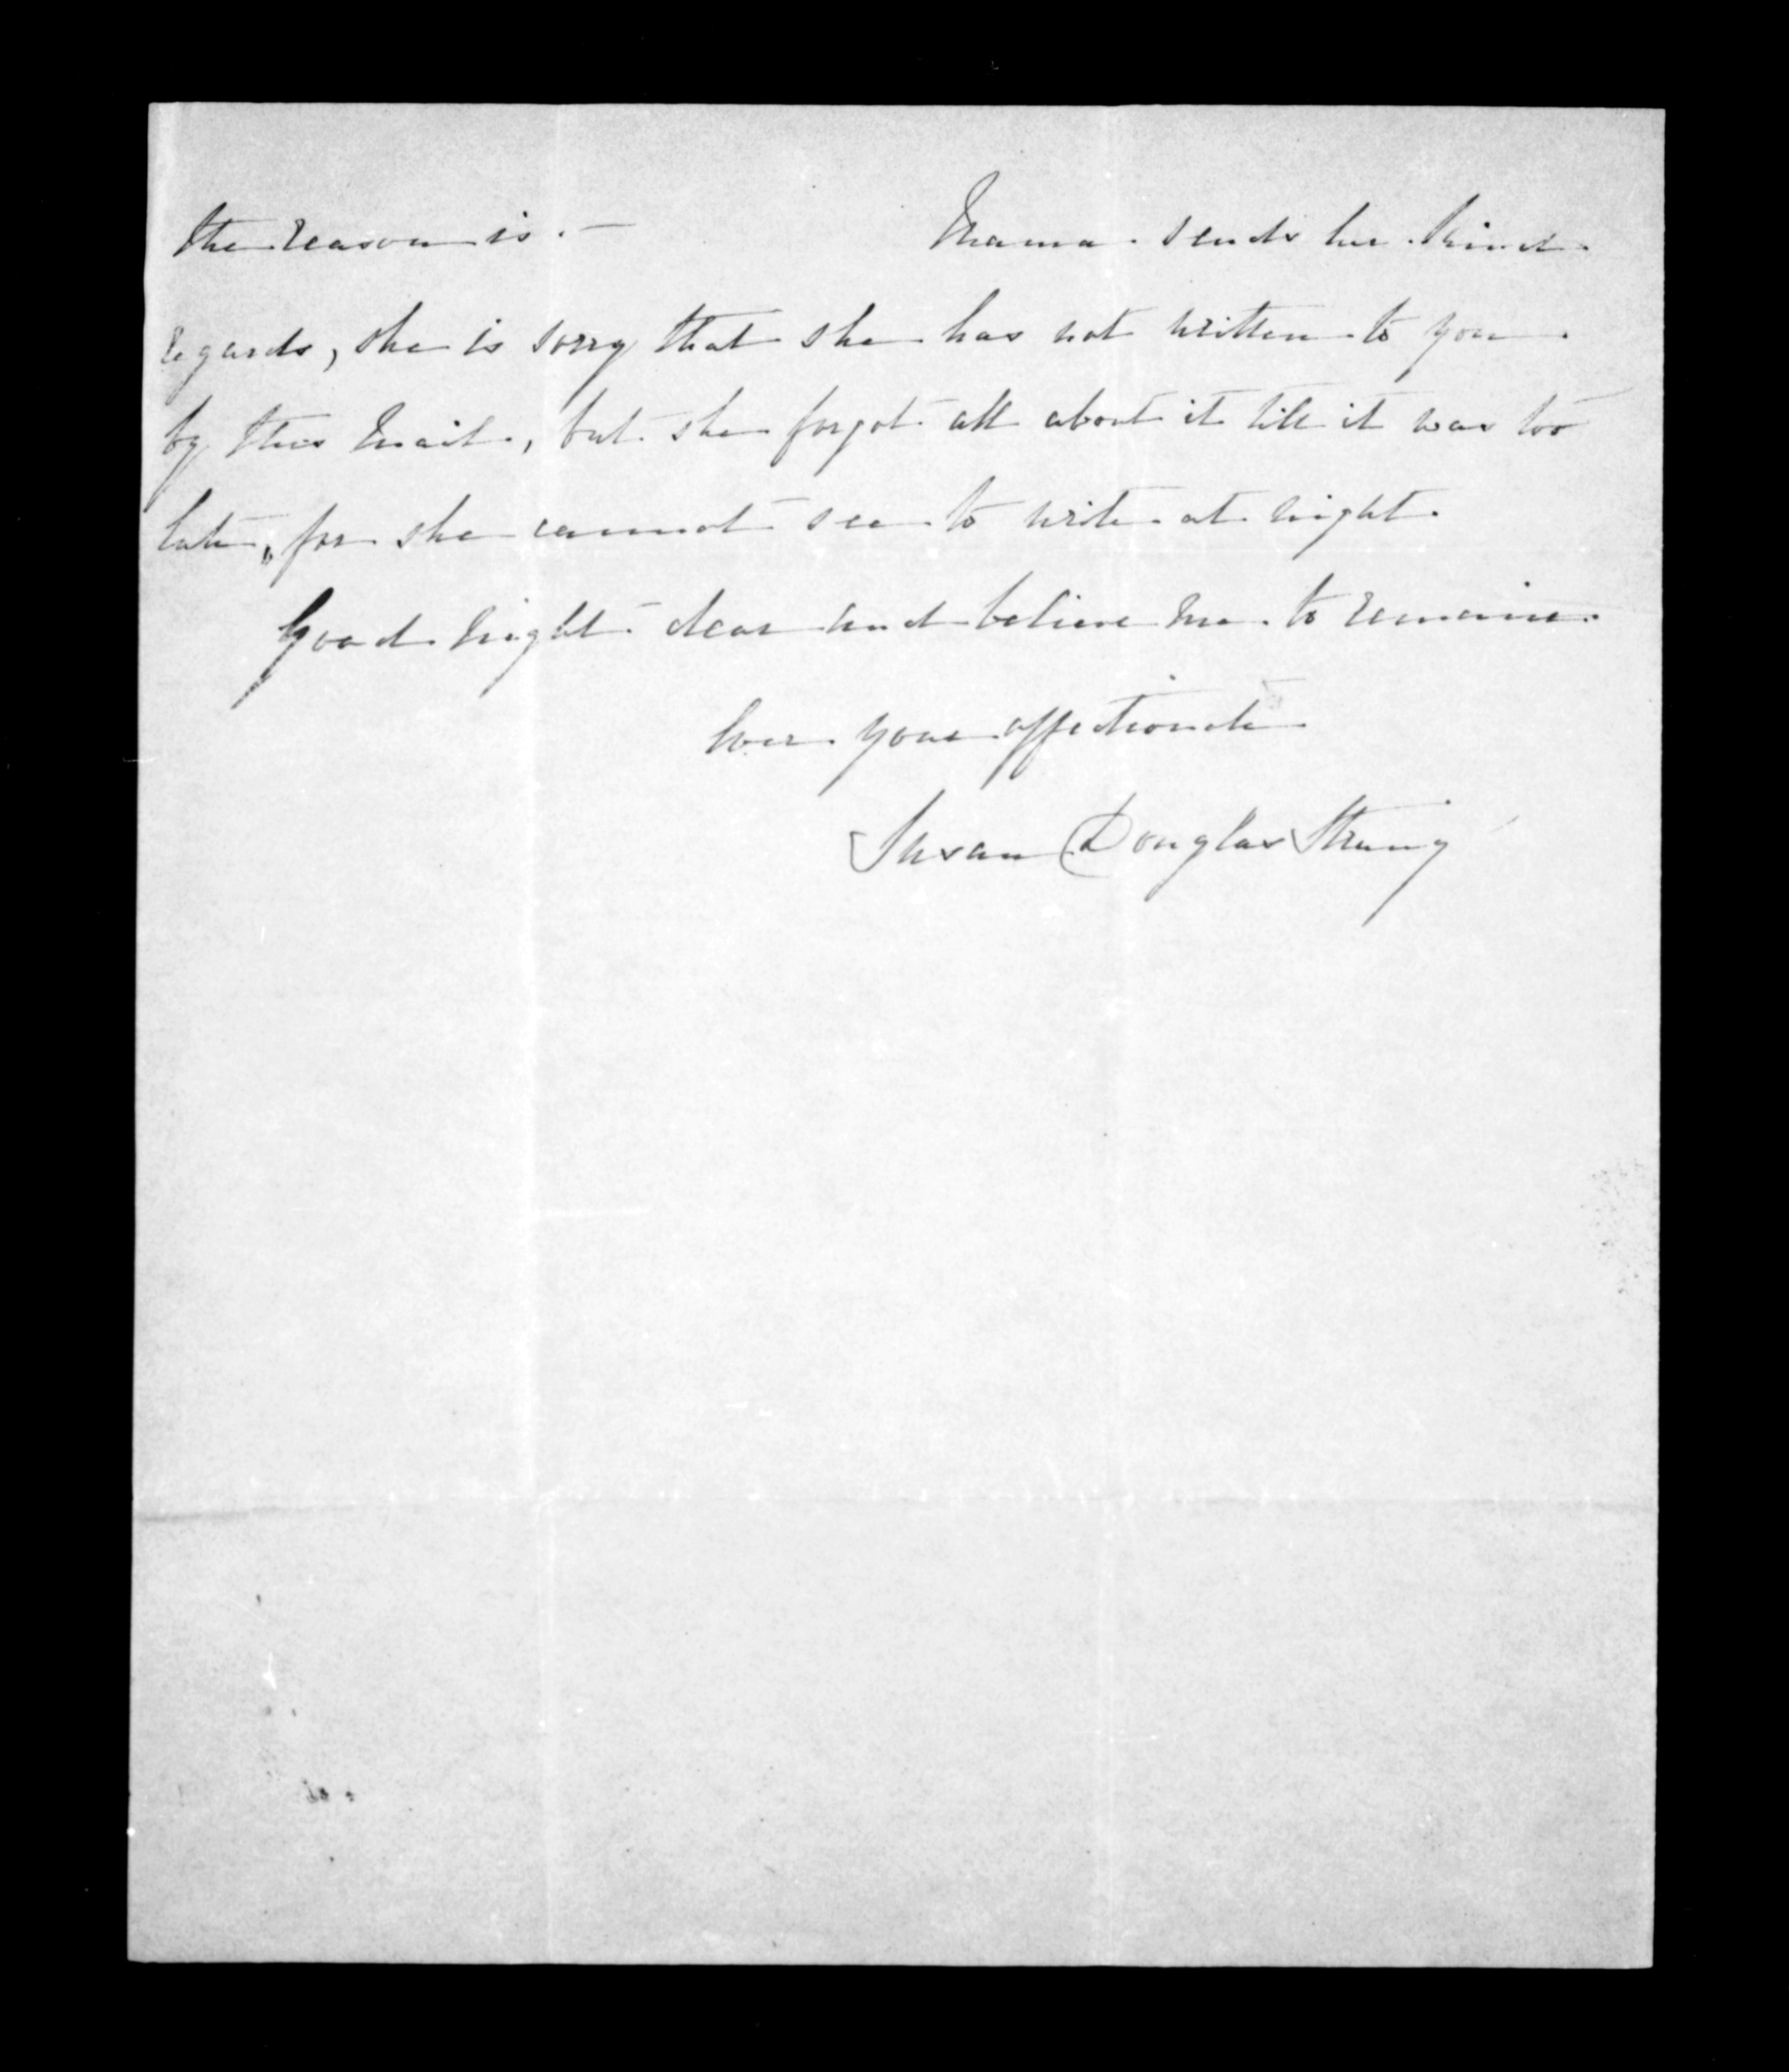 the reason is. — Mama sends her kind
regards, she is sorry that she has not written to you
by this mail, but she forgot all about it till it was too
late, for she cannot see to write at night.
Good night dear and believe me to remain
Ever your affectionate
Susan Douglas Strang